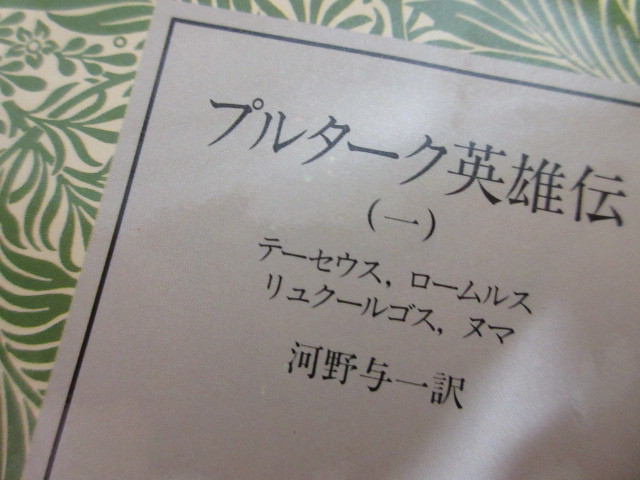 プルターク英雄伝
(一)
テーセウス, ロームルス
リュクールゴス, ヌマ
河野与一訳